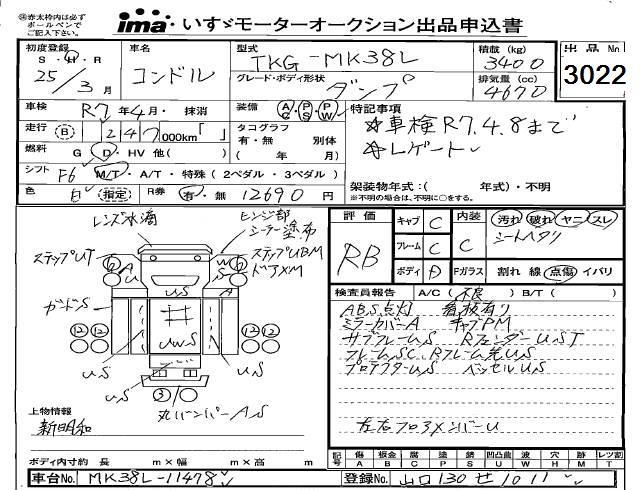 ㊟赤太枠内は必ず
ボールペンで
ご記入下さい。
ima・いすゞモーターオークション出品申込書
初度登録
S・H・R
25/3月
車名
コンドル
型式
TKG-MK38L
グレード・ボディ形状
ダンプ
積載 (kg)
3400
排気量 (cc)
4670
出品No
3022
車検 R7年4月・抹消
装備 A/C P/S P/W
特記事項
☆車検R7.4.8まで
☆レゲート
走行 (B) 247,000km「 」
タコグラフ
有・無 別体
( 年 月)
燃料 G・D・HV 他( )
シフト F6 M/T・A/T・特殊(2ペダル・3ペダル)
色 白 (指定) R券 有・無 12690円
架装物年式:( 年式)・不明
※不明の場合は、不明に○をする。
レンズ水滴
ヒンジ部
シーラー塗布
ステップUT
ステップUBM
ドアXM
6 A U
W S 6
US
ガードS
A
12 12
12 12
UWS
US
US
US
3
丸バンパーAS
上物情報
新明和
ボディ内寸約 長 m×幅 m×高 m
評価
RB
キャブ C
フレーム C
ボディ D
内装 C
Fガラス
汚れ 破れ ヤニ スレ
シートヘタリ
割れ 線 点傷 イバリ
検査員報告 A/C(不良) B/T( )
ABS点灯 看板有り
ミラーカバーA キャブPM
サブフレームS RフェンダーUST
フレームSC、Rフレーム先US
プロテクターUS ベッセルUS
左右フロアメンバーU
記号 傷 板金 腐 塗 錆 凹凸曲 波 穴 跡 レツ割
A B C P S U W H M T
車台No. MK38L-11478
登録No. 山口130せ1011